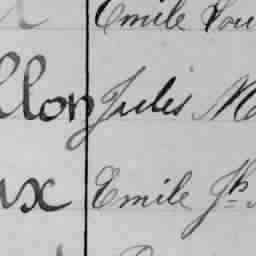 Emile Lou
llon Jules M
ux Emile Jh